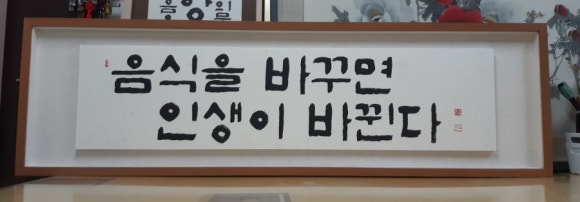 음식을 바꾸면
인생이 바뀐다